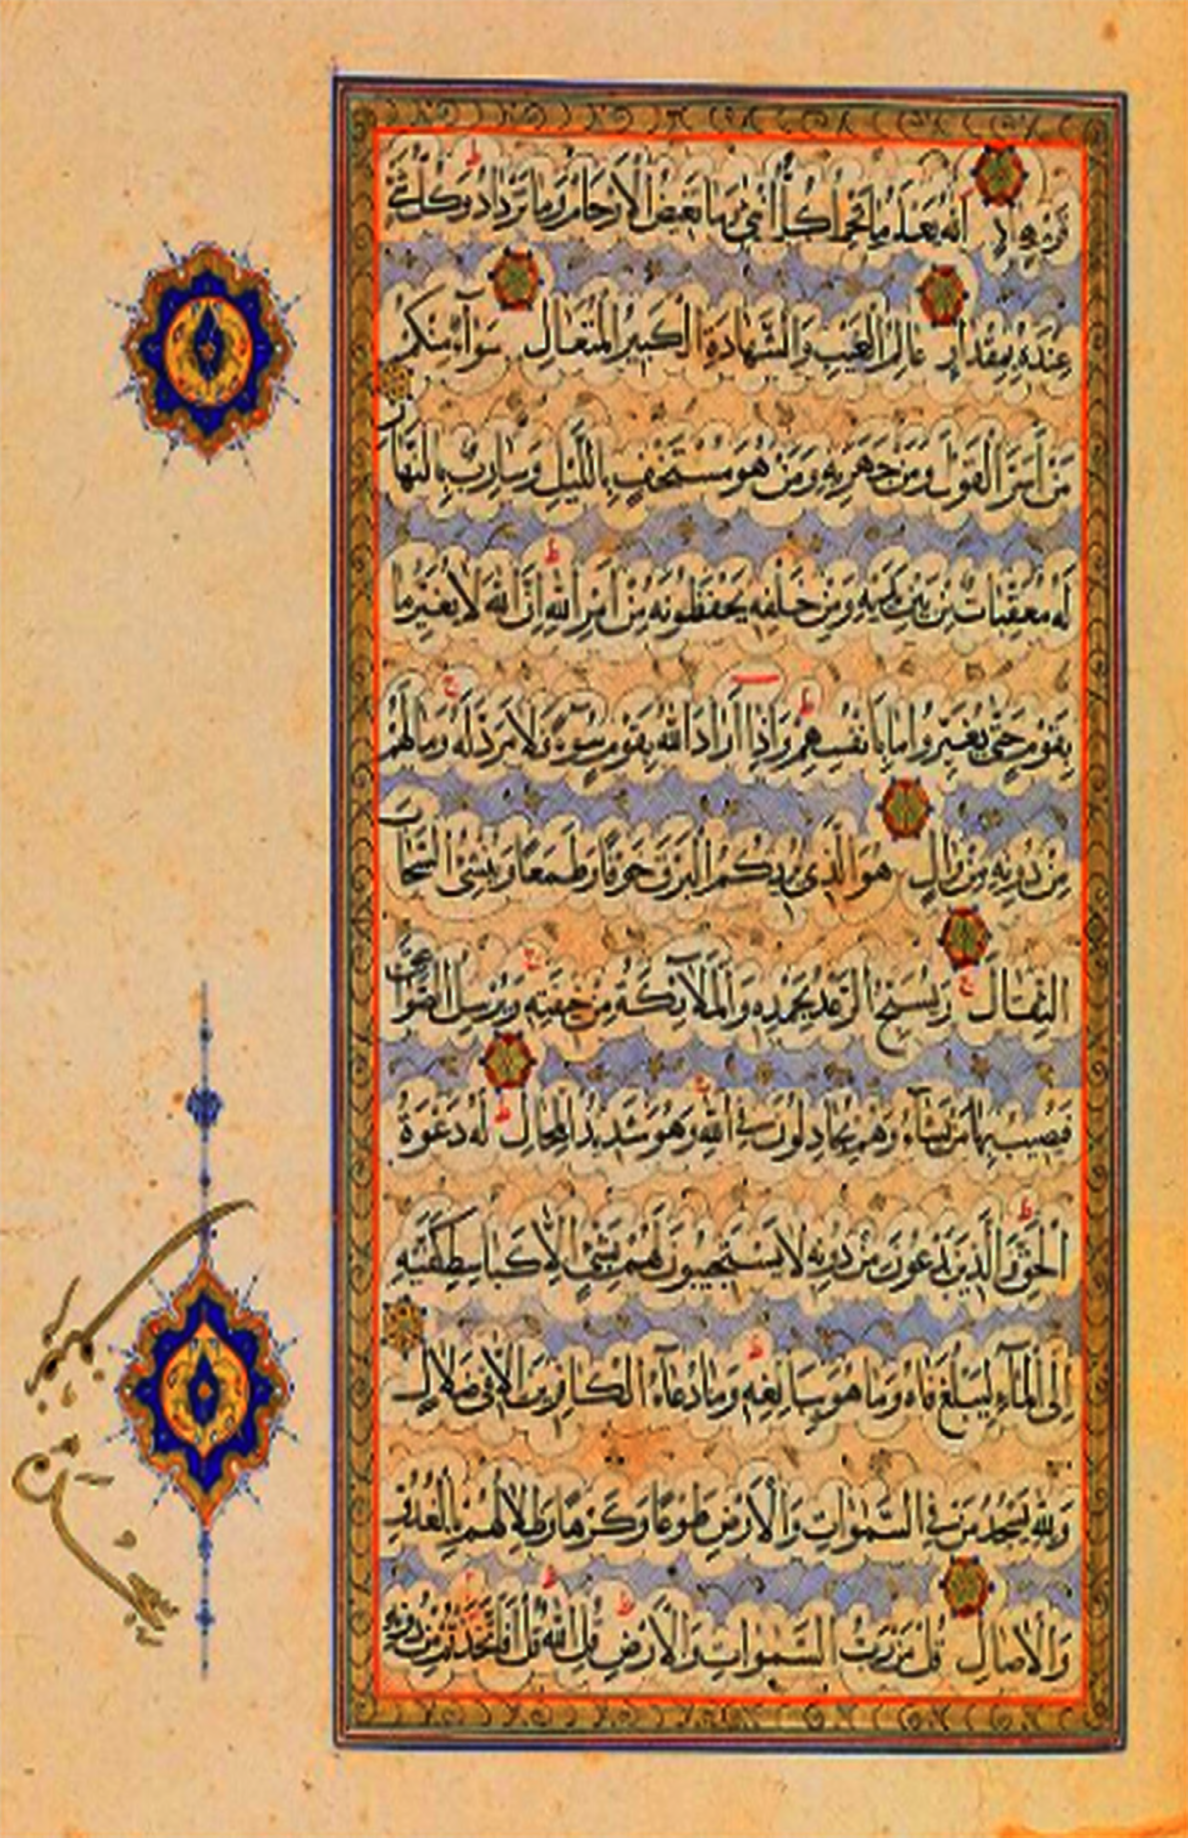 قَوْمٍ هَادٍ اَللّٰهُ يَعْلَمُ مَا تَحْمِلُ كُلُّ اُنْثٰى وَمَا تَغِيضُ الْاَرْحَامُ وَمَا تَزْدَادُ وَكُلُّ شَيْءٍ
عِنْدَهُ بِمِقْدَارٍ عَالِمُ الْغَيْبِ وَالشَّهَادَةِ الْكَبِيرُ الْمُتَعَالِ سَوَآءٌ مِنْكُمْ
مَنْ اَسَرَّ الْقَوْلَ وَمَنْ جَهَرَ بِهِ وَمَنْ هُوَ مُسْتَخْفٍ بِاللَّيْلِ وَسَارِبٌ بِالنَّهَارِ
لَهُ مُعَقِّبَاتٌ مِنْ بَيْنِ يَدَيْهِ وَمِنْ خَلْفِهِ يَحْفَظُونَهُ مِنْ اَمْرِ اللّٰهِ اِنَّ اللّٰهَ لَا يُغَيِّرُ مَا
بِقَوْمٍ حَتّٰى يُغَيِّرُوا مَا بِاَنْفُسِهِمْ وَاِذَا اَرَادَ اللّٰهُ بِقَوْمٍ سُوٓءًا فَلَا مَرَدَّ لَهُ وَمَا لَهُمْ
مِنْ دُونِهِ مِنْ وَالٍ هُوَ الَّذِي يُرِيكُمُ الْبَرْقَ خَوْفًا وَطَمَعًا وَيُنْشِئُ السَّحَابَ
الثِّقَالَ وَيُسَبِّحُ الرَّعْدُ بِحَمْدِهِ وَالْمَلَآئِكَةُ مِنْ خِيفَتِهِ وَيُرْسِلُ الصَّوَاعِقَ
فَيُصِيبُ بِهَا مَنْ يَشَآءُ وَهُمْ يُجَادِلُونَ فِي اللّٰهِ وَهُوَ شَدِيدُ الْمِحَالِ لَهُ دَعْوَةُ
الْحَقِّ وَالَّذِينَ يَدْعُونَ مِنْ دُونِهِ لَا يَسْتَجِيبُونَ لَهُمْ بِشَيْءٍ اِلَّا كَبَاسِطِ كَفَّيْهِ
اِلَى الْمَآءِ لِيَبْلُغَ فَاهُ وَمَا هُوَ بِبَالِغِهِ وَمَا دُعَآءُ الْكَافِرِينَ اِلَّا فِي ضَلَالٍ
وَلِلّٰهِ يَسْجُدُ مَنْ فِي السَّمٰوَاتِ وَالْاَرْضِ طَوْعًا وَكَرْهًا وَظِلَالُهُمْ بِالْغُدُوِّ
وَالْاٰصَالِ قُلْ مَنْ رَبُّ السَّمٰوَاتِ وَالْاَرْضِ قُلِ اللّٰهُ قُلْ اَفَاتَّخَذْتُمْ مِنْ دُونِهِ